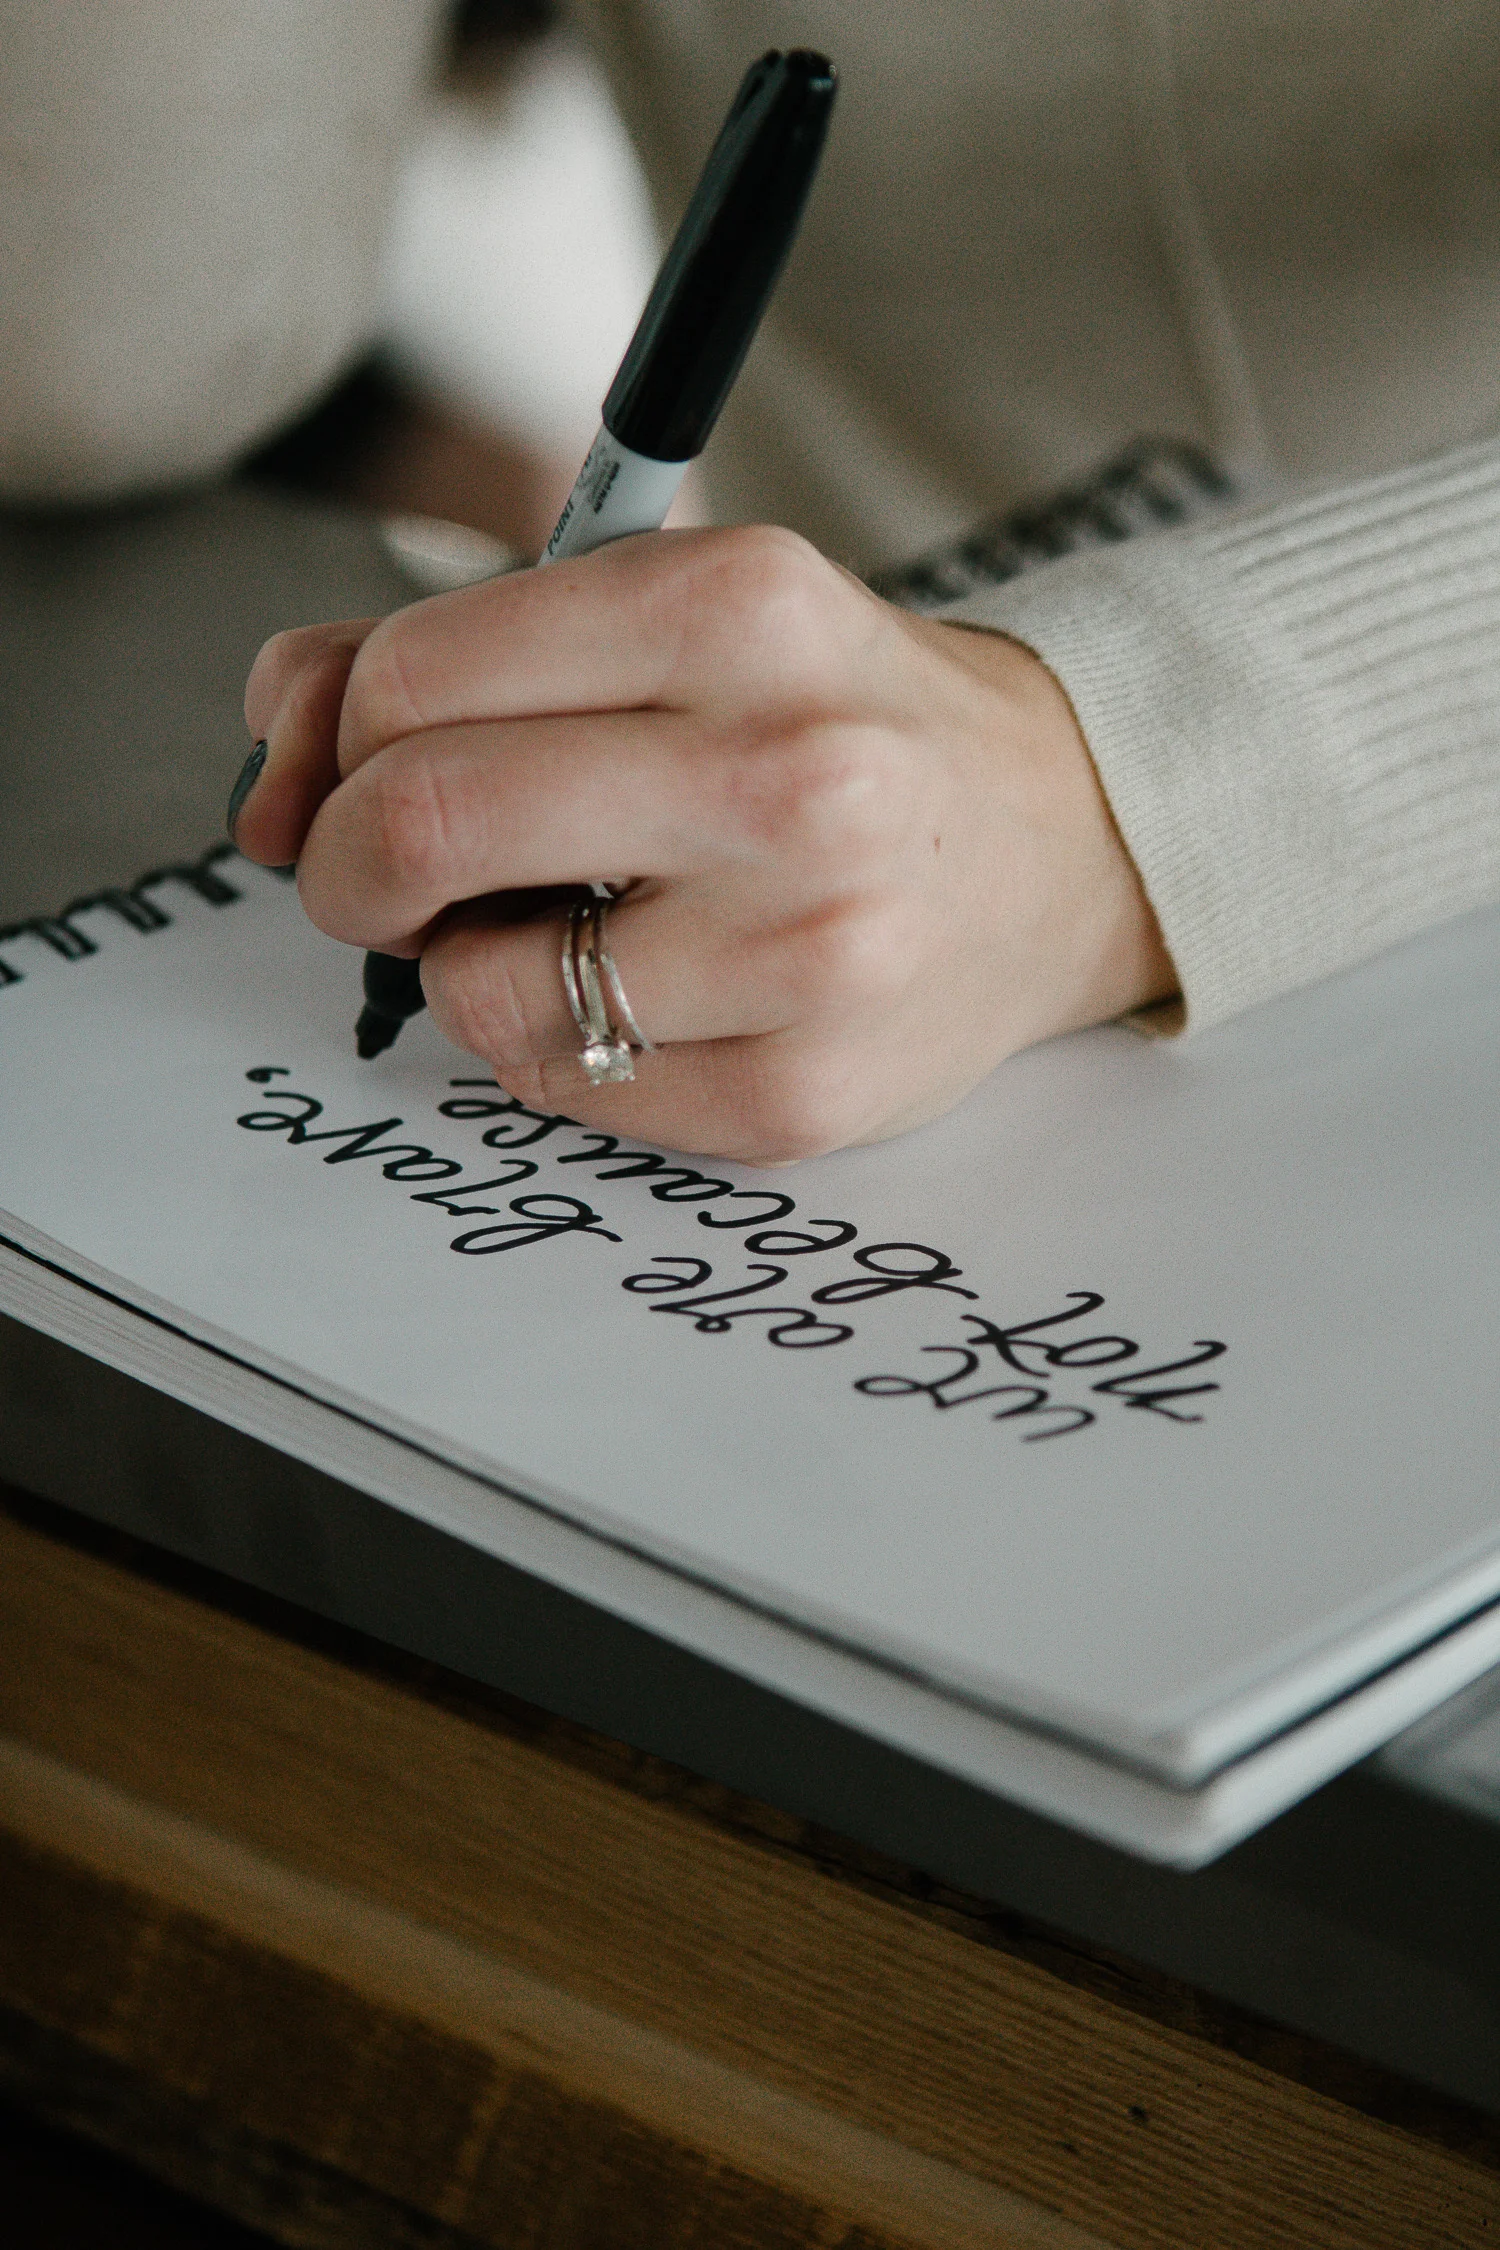 we are brave,
not because
POINT